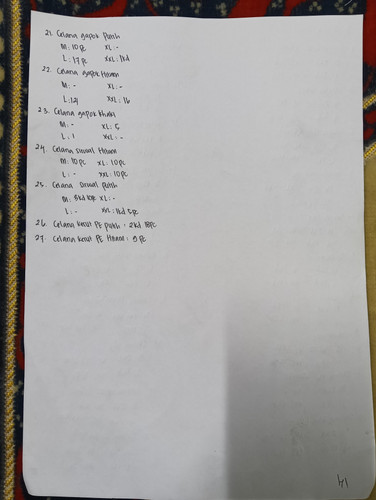 21. Celana gapok Putih
M: 10 pc XL: -
L: 17 pc XXL: 1kd
22. Celana gapok Hitam
M: - XL: -
L: 121 XXL: 16
23. Celana gapok Khaki
M: - XL: 5
L: 1 XXL: -
24. Celana Sirwal Hitam
M: 10 pc XL: 10 pc
L: - XXL: 10 pc
25. Celana Sirwal putih
M: 3kd XL: -
L: - XXL: 1kd 5pc
26. Celana Kerut PE putih : 2kd 18pc
27. Celana Kerut PE Hitam : 9 pc